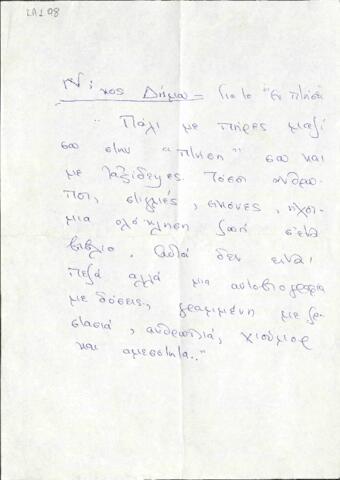 Νίκος Δήμου - Για το "Εν πτήσει
"Πάλι με πήρες μαζί
σου στην "πτήση" σου και
με ταξίδεψες. Τόσοι άνθρω-
ποι, στιγμές, εικόνες, ήχοι-
μια ολόκληρη ζωή σ' ένα
βιβλίο. Αυτά δεν είναι
πεζά αλλά μια αυτοβιογραφία
με δόσεις, γραμμένη με ζε-
στασιά, ανθρωπιά, χιούμορ
και αμεσότητα.."